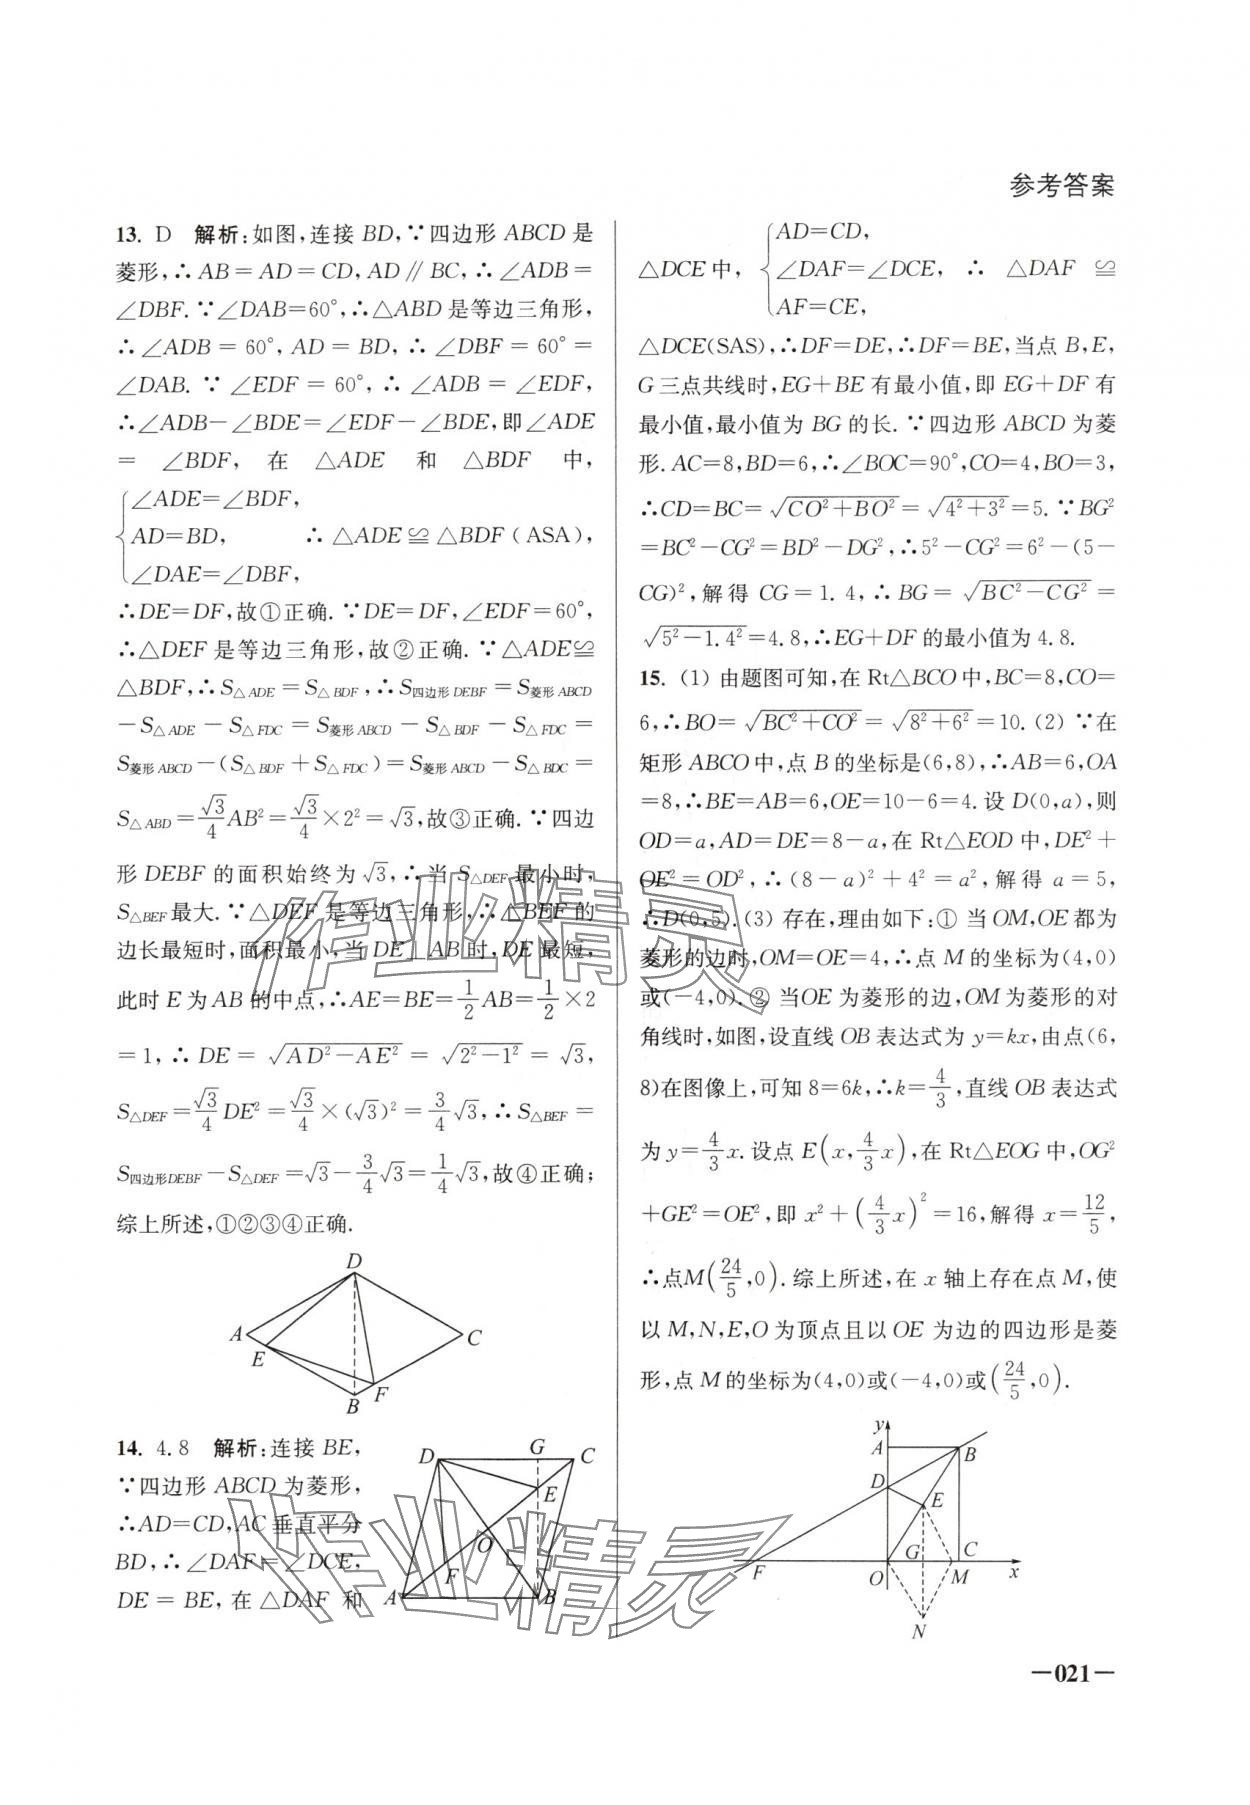 参考答案
13. D 解析:如图,连接 BD,∵四边形 ABCD 是
菱形,∴AB=AD=CD,AD∥BC,∴∠ADB=
∠DBF.∵∠DAB=60°,∴△ABD是等边三角形,
∴∠ADB=60°,AD=BD,∴∠DBF=60°=
∠DAB.∵∠EDF=60°,∴∠ADB=∠EDF,
∴∠ADB-∠BDE=∠EDF-∠BDE,即∠ADE
=∠BDF,在△ADE和△BDF中,
{∠ADE=∠BDF,
AD=BD, ∴△ADE≌△BDF(ASA),
∠DAE=∠DBF,
∴DE=DF,故①正确.∵DE=DF,∠EDF=60°,
∴△DEF是等边三角形,故②正确.∵△ADE≌
△BDF,∴S△ADE=S△BDF,∴S四边形DEBF=S菱形ABCD
-S△ADE-S△FDC=S菱形ABCD-S△BDF-S△FDC=
S菱形ABCD-(S△BDF+S△FDC)=S菱形ABCD-S△BDC=
S△ABD=√3/4AB²=√3/4×2²=√3,故③正确.∵四边
形DEBF的面积始终为√3,∴当S△DEF最小时,
S△BEF最大.∵△DEF是等边三角形,∴△BEF的
边长最短时,面积最小,当DE⊥AB时,DE最短,
此时E为AB的中点,∴AE=BE=1/2AB=1/2×2
=1,∴DE=√(AD²-AE²)=√(2²-1²)=√3,
S△DEF=√3/4DE²=√3/4×(√3)²=3/4√3,∴S△BEF=
S四边形DEBF-S△DEF=√3-3/4√3=1/4√3,故④正确;
综上所述,①②③④正确.
D
A
C
E
F
B
14. 4.8 解析:连接BE,
∵四边形ABCD为菱形,
∴AD=CD,AC垂直平分
BD,∴∠DAF=∠DCE,
DE=BE,在△DAF和
D
G
C
E
O
F
A
B
△DCE中,{AD=CD,
∠DAF=∠DCE, ∴△DAF≌
AF=CE,
△DCE(SAS),∴DF=DE,∴DF=BE,当点B,E,
G三点共线时,EG+BE有最小值,即EG+DF有
最小值,最小值为BG的长.∵四边形ABCD为菱
形.AC=8,BD=6,∴∠BOC=90°,CO=4,BO=3,
∴CD=BC=√(CO²+BO²)=√(4²+3²)=5.∵BG²
=BC²-CG²=BD²-DG²,∴5²-CG²=6²-(5-
CG)²,解得CG=1.4,∴BG=√(BC²-CG²)=
√(5²-1.4²)=4.8,∴EG+DF的最小值为4.8.
15. (1) 由题图可知,在Rt△BCO中,BC=8,CO=
6,∴BO=√(BC²+CO²)=√(8²+6²)=10.(2) ∵在
矩形ABCO中,点B的坐标是(6,8),∴AB=6,OA
=8,∴BE=AB=6,OE=10-6=4.设D(0,a),则
OD=a,AD=DE=8-a,在Rt△EOD中,DE²+
OE²=OD²,∴(8-a)²+4²=a²,解得a=5,
∴D(0,5).(3) 存在,理由如下:① 当OM,OE都为
菱形的边时,OM=OE=4,∴点M的坐标为(4,0)
或(-4,0).② 当OE为菱形的边,OM为菱形的对
角线时,如图,设直线OB表达式为y=kx,由点(6,
8)在图像上,可知8=6k,∴k=4/3,直线OB表达式
为y=4/3x.设点E(x,4/3x),在Rt△EOG中,OG²
+GE²=OE²,即x²+(4/3x)²=16,解得x=12/5,
∴点M(24/5,0).综上所述,在x轴上存在点M,使
以M,N,E,O为顶点且以OE为边的四边形是菱
形,点M的坐标为(4,0)或(-4,0)或(24/5,0).
y
A
B
D
E
G
C
F
O
M
x
N
—021—
作业精灵
作业精灵